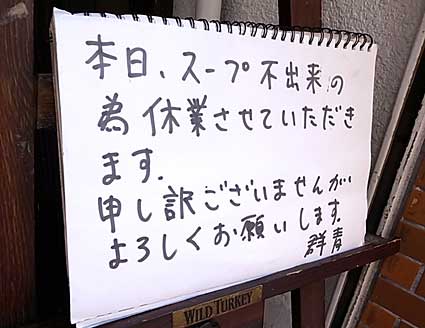 本日、スープ不出来の
為休業させていただき
ます.
申し訳ございませんが
よろしくお願いします.
群青
WILD TURKEY